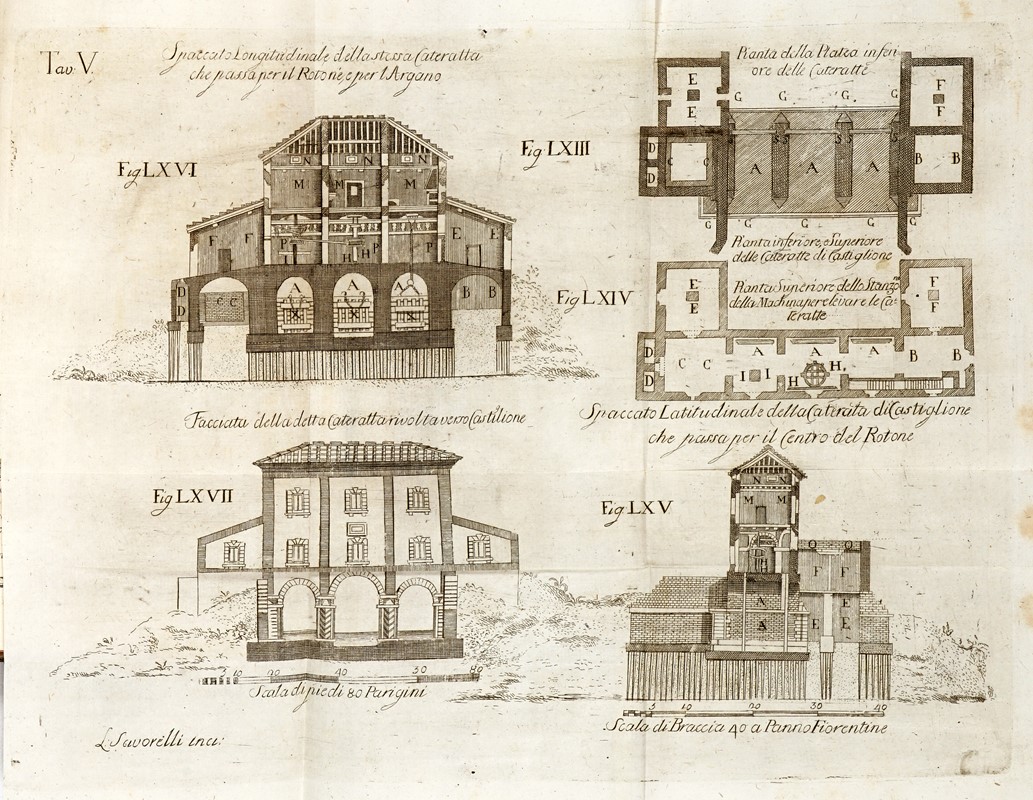 Tav. V.
Spaccato Longitudinale della stessa Cateratta
che passa per il Rotone, e per l'Argano
Fig LXVI
N N N
M M M
F F P I H H P P E E
D D C C A A A B B
X X X
Fig LXIII
Pianta della Platea inferi
ore delle Cateratte
E E F F
G G G G
D D C C A A A B B
S S S
G G G G
Pianta inferiore, e Superiore
delle Cateratte di Castiglione
Fig LXIV
Pianta Superiore dello Stanzo
della Machina per levare le Ca-
teratte
E E F F
D D C C A A A B B
I I H H
Facciata della detta Cateratta rivolta verso Castilione
Fig LXVII
10 20 40 50 80
Scala di piedi 80 Parigini
Spaccato Latitudinale della Caterata di Castiglione
che passa per il Centro del Rotone
Fig LXV
N N
M M
Q Q
F F
A A
E E E
5 10 20 30 40
Scala di Braccia 40 a Panno Fiorentine
L. Savorelli inci: